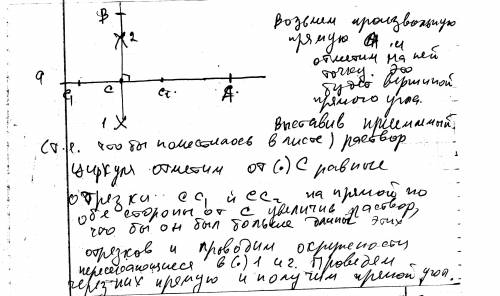 B
2
a C₁ C C₂ A
1
Возьмем произвольную
прямую a и
отметим на ней
точку. Это
будет вершиной
прямого угла.
Выставив приемлемый
(т.е. что бы поместилось в листе) раствор
циркуля отметим от (·) C равные
отрезки CC₁ и CC₂ на прямой по
обе стороны от C увеличив раствор,
что бы он был больше длины этих
отрезков и проводим окружности
пересекающиеся в (·) 1 и 2. Проведем
через них прямую и получим прямой угол.